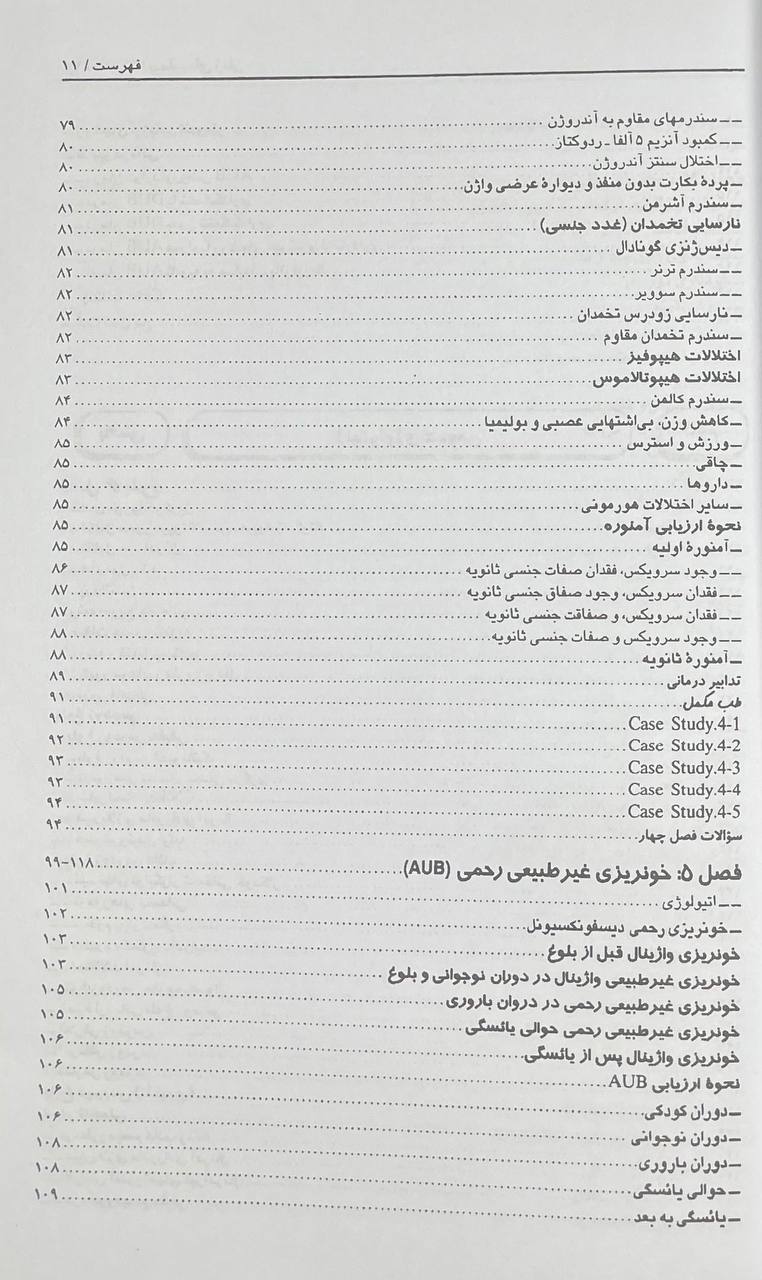 فهرست / ۱۱
ــ ــ سندرمهای مقاوم به آندروژن ........ ۷۹
ــ ــ کمبود آنزیم ۵ آلفا ـ ردوکتاز ........ ۸۰
ــ ــ اختلال سنتز آندروژن ........ ۸۰
ــ پردهٔ بکارت بدون منفذ و دیوارهٔ عرضی واژن ........ ۸۰
ــ سندرم آشرمن ........ ۸۱
نارسایی تخمدان (غدد جنسی) ........ ۸۱
ــ دیس‌ژنزی گونادال ........ ۸۱
ــ ــ سندرم ترنر ........ ۸۲
ــ ــ سندرم سوویر ........ ۸۲
ــ نارسایی زودرس تخمدان ........ ۸۲
ــ سندرم تخمدان مقاوم ........ ۸۲
اختلالات هیپوفیز ........ ۸۳
اختلالات هیپوتالاموس ........ ۸۳
ــ سندرم کالمن ........ ۸۴
ــ کاهش وزن، بی‌اشتهایی عصبی و بولیمیا ........ ۸۴
ــ ورزش و استرس ........ ۸۵
ــ چاقی ........ ۸۵
ــ داروها ........ ۸۵
ــ سایر اختلالات هورمونی ........ ۸۵
نحوهٔ ارزیابی آمنوره ........ ۸۵
ــ آمنورهٔ اولیه ........ ۸۵
ــ ــ وجود سرویکس، فقدان صفات جنسی ثانویه ........ ۸۶
ــ ــ فقدان سرویکس، وجود صفاق جنسی ثانویه ........ ۸۷
ــ ــ فقدان سرویکس، و صفاقت جنسی ثانویه ........ ۸۷
ــ ــ وجود سرویکس و صفات جنسی ثانویه ........ ۸۸
ــ آمنورهٔ ثانویه ........ ۸۸
تدابیر درمانی ........ ۸۹
طب مکمل ........ ۹۱
Case Study.4-1 ........ ۹۱
Case Study.4-2 ........ ۹۲
Case Study.4-3 ........ ۹۳
Case Study.4-4 ........ ۹۳
Case Study.4-5 ........ ۹۴
سؤالات فصل چهار ........ ۹۴
فصل ۵: خونریزی غیرطبیعی رحمی (AUB) ........ ۹۹-۱۱۸
ــ ــ اتیولوژی ........ ۱۰۱
ــ خونریزی رحمی دیسفونکسیونل ........ ۱۰۲
خونریزی واژینال قبل از بلوغ ........ ۱۰۳
خونریزی غیرطبیعی واژینال در دوران نوجوانی و بلوغ ........ ۱۰۳
خونریزی غیرطبیعی رحمی در دروان باروری ........ ۱۰۵
خونریزی غیرطبیعی رحمی حوالی یائسگی ........ ۱۰۵
خونریزی واژینال پس از یائسگی ........ ۱۰۶
نحوهٔ ارزیابی AUB ........ ۱۰۶
ــ دوران کودکی ........ ۱۰۶
ــ دوران نوجوانی ........ ۱۰۶
ــ دوران باروری ........ ۱۰۸
ــ حوالی یائسگی ........ ۱۰۸
ــ یائسگی به بعد ........ ۱۰۹